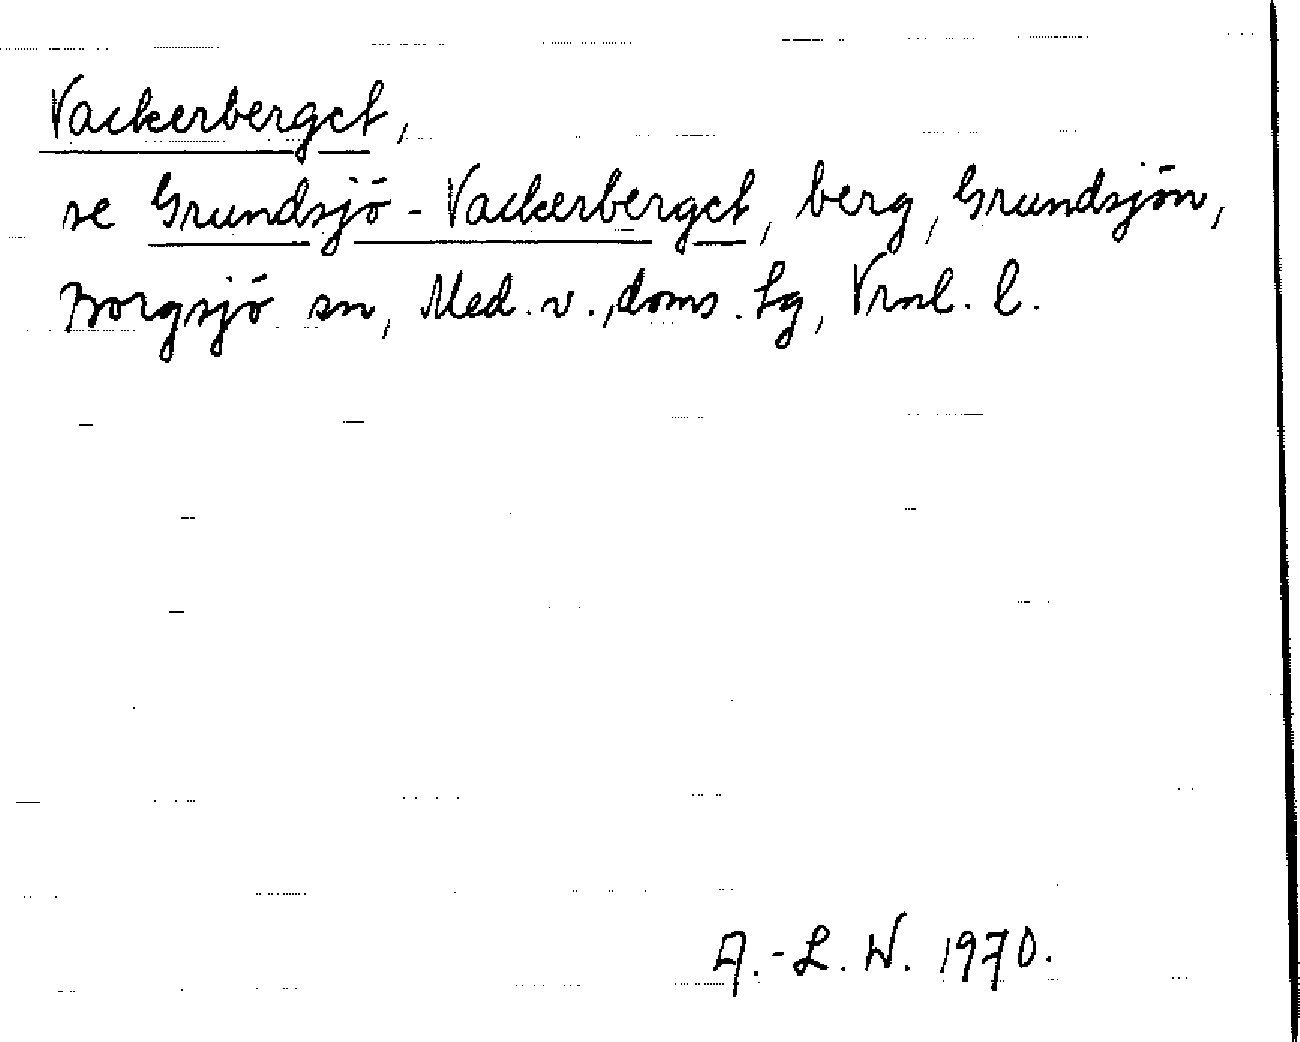 Vackerberget,
se Grundsjö-Vackerberget, berg, Grundsjön,
Borgsjö sn, Med. v., doms. hg, Vrnl. l.
A.-L. W. 1970.